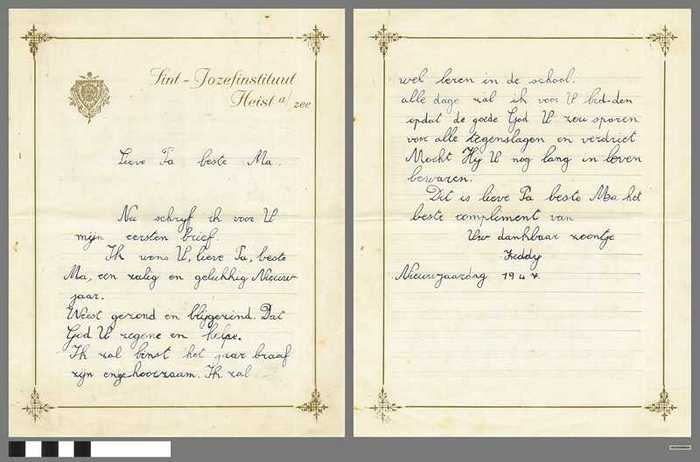 Sint-Jozefinstituut
Heist a/zee
Lieve Pa beste Ma.
Nu schrijf ik voor U
mijn eersten brief.
Ik wens U, lieve Pa, beste
Ma, een zalig en gelukkig Nieuw
jaar.
Weest gezond en blijgezind. Dat
God U zegene en helpe.
Ik zal binst het jaar braaf
zijn en gehoorzaam. Ik zal
wel leren in de school.
alle dage zal ik voor U bid-den
opdat de goede God U zou sparen
voor alle tegenslagen en verdriet
Mocht Hij U nog lang in leven
bewaren.
Dit is lieve Pa beste Ma het
beste compliment van
Uw dankbaar zoontje
Freddy
Nieuwjaardag 1947.